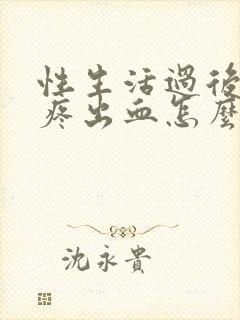 性生活過後
疼出血怎麼
沈永貴